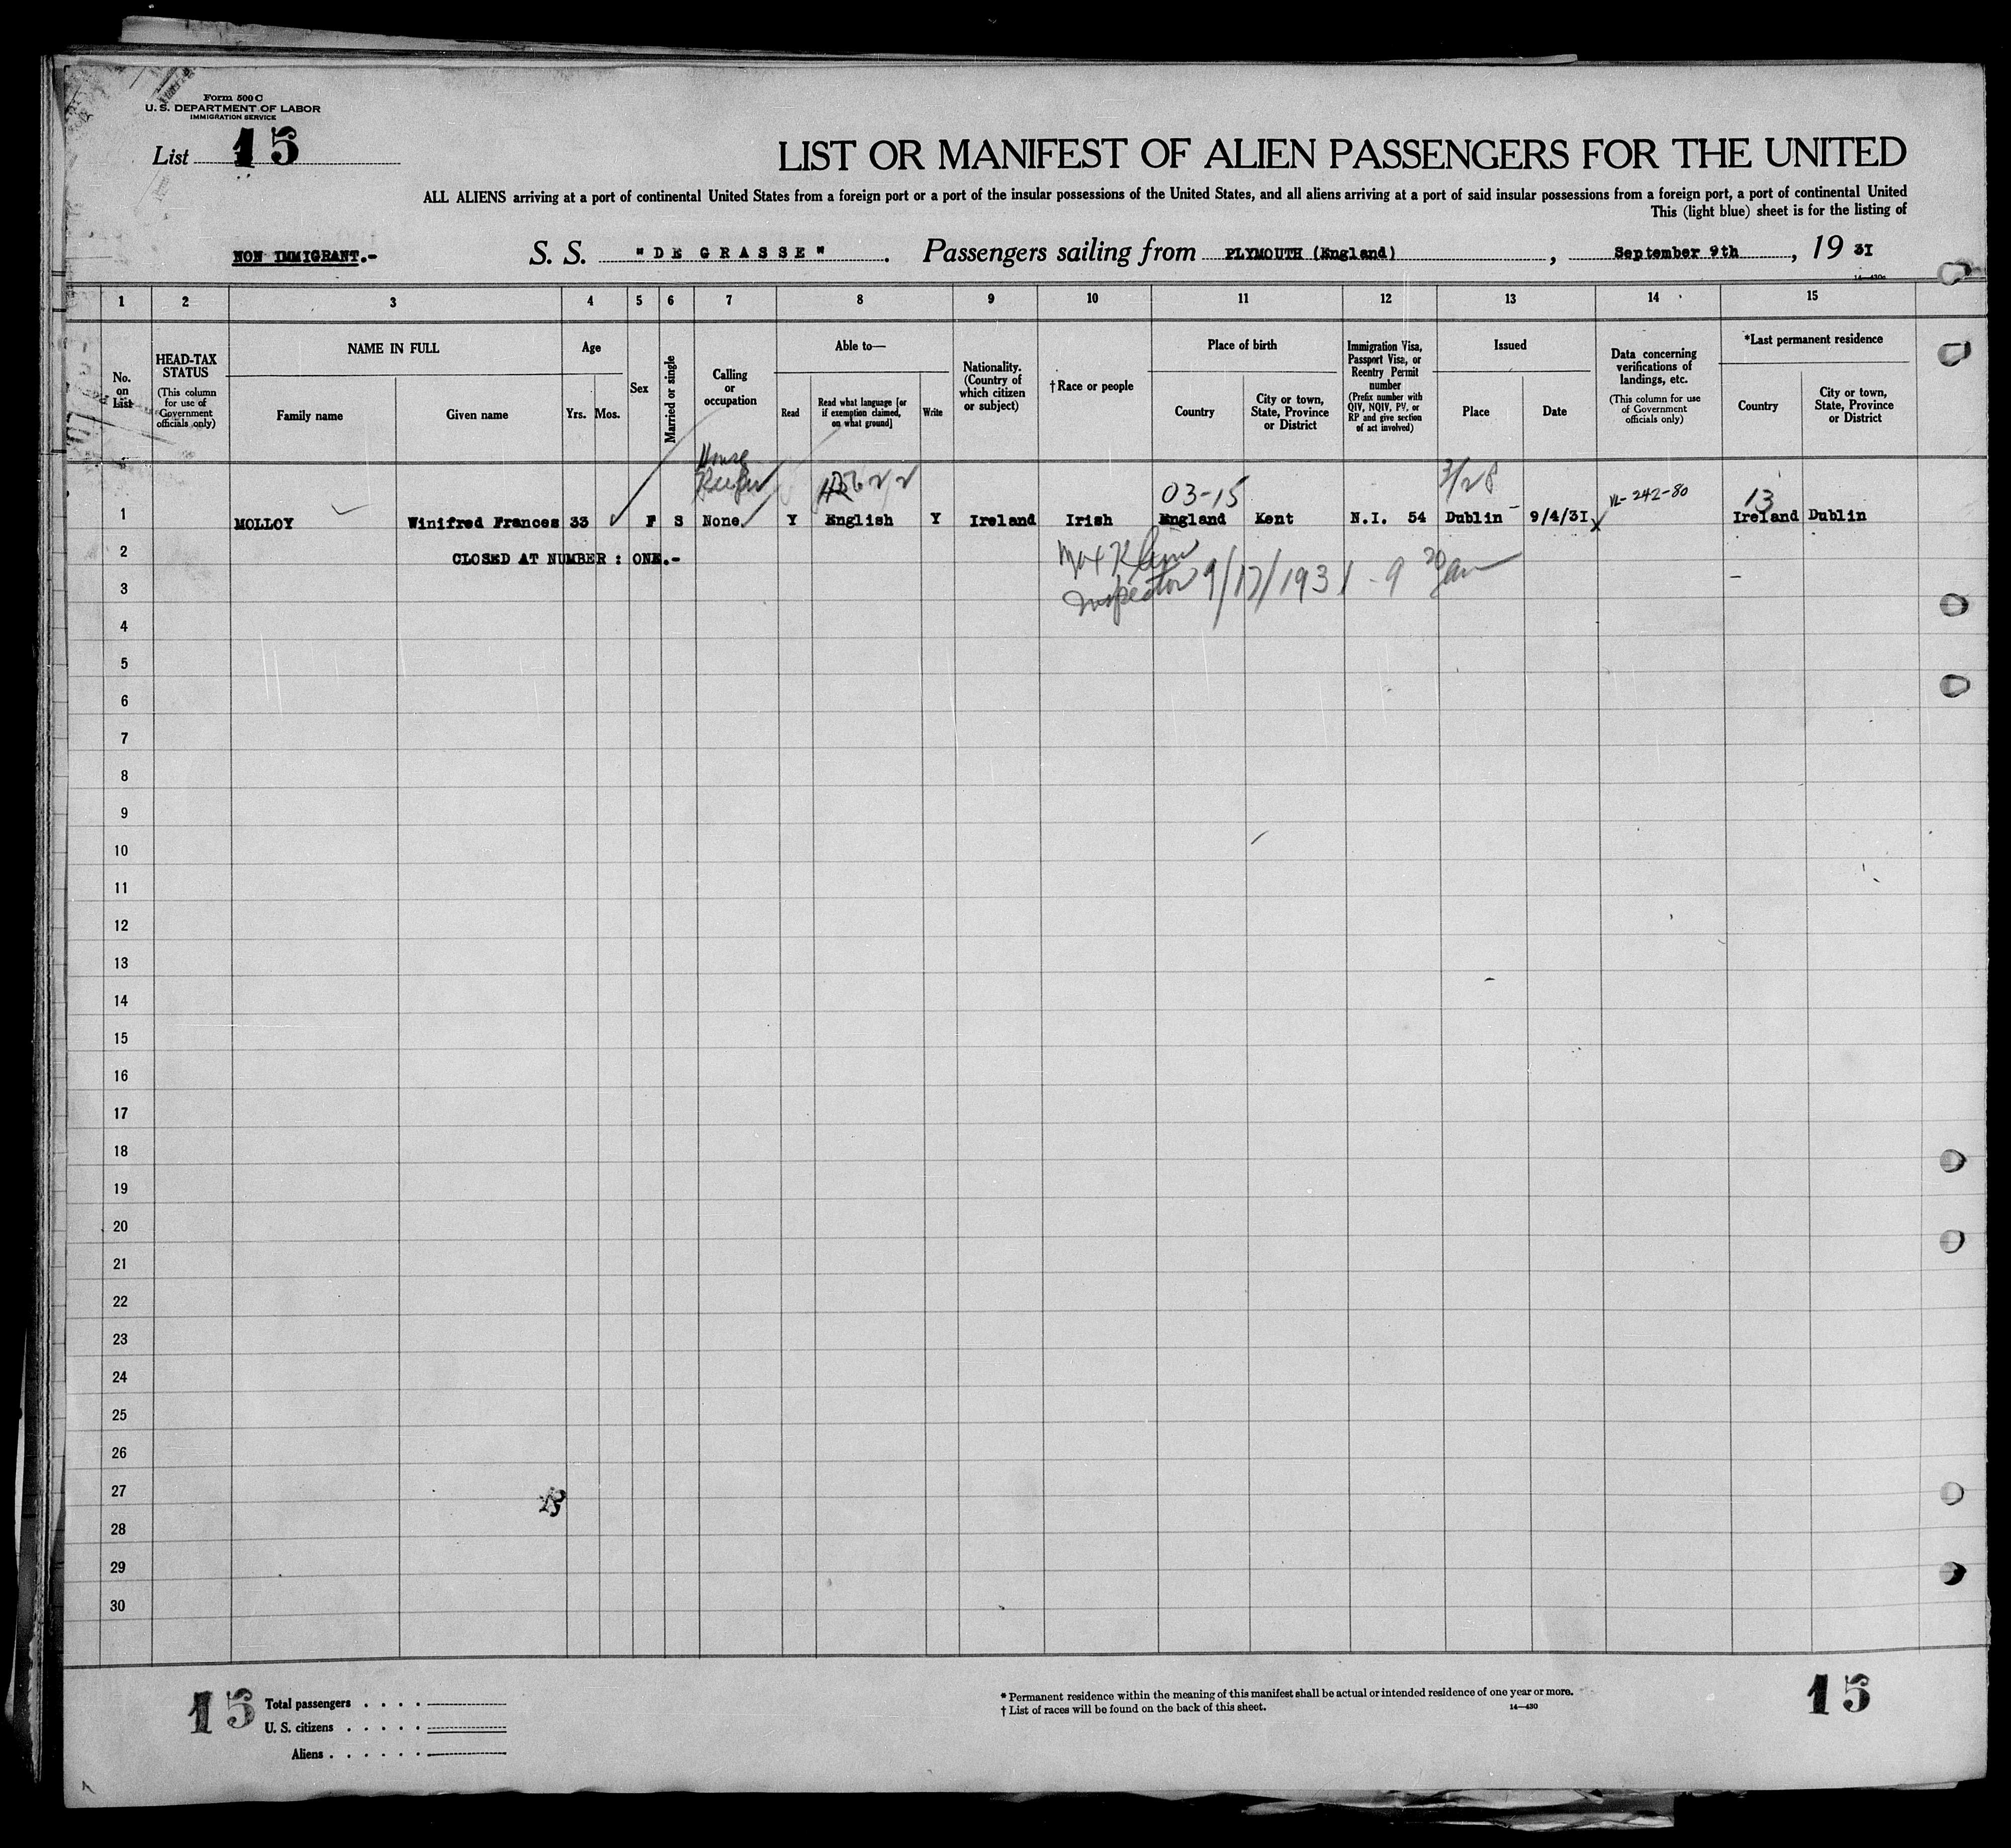 Form 500 C
U. S. DEPARTMENT OF LABOR
IMMIGRATION SERVICE
List 15
LIST OR MANIFEST OF ALIEN PASSENGERS FOR THE UNITED
ALL ALIENS arriving at a port of continental United States from a foreign port or a port of the insular possessions of the United States, and all aliens arriving at a port of said insular possessions from a foreign port, a port of continental United
This (light blue) sheet is for the listing of
NON IMMIGRANT.- S. S. "DE GRASSE". Passengers sailing from PLYMOUTH (England), September 9th, 19 3I
14—430a
1 2 3 4 5 6 7 8 9 10 11 12 13 14 15
No. on List
HEAD-TAX STATUS
(This column for use of Government officials only)
NAME IN FULL
Family name
Given name
Age
Yrs. Mos.
Sex
Married or single
Calling or occupation
Able to—
Read
Read what language [or if exemption claimed, on what ground]
Write
Nationality. (Country of which citizen or subject)
†Race or people
Place of birth
Country
City or town, State, Province or District
Immigration Visa, Passport Visa, or Reentry Permit number
(Prefix number with QIV, NQIV, PV, or RP and give section of act involved)
Issued
Place
Date
Data concerning verifications of landings, etc.
(This column for use of Government officials only)
*Last permanent residence
Country
City or town, State, Province or District
House
Keeper
03-15
3/28
VL-242-80
13
1 MOLLOY Winifred Frances 33 F S None. Y English Y Ireland Irish England Kent N.I. 54 Dublin 9/4/3I Ireland Dublin
2 CLOSED AT NUMBER : ONE.-
Max Klein
Inspector 9/17/1931 - 9 20 am
3
4
5
6
7
8
9
10
11
12
13
14
15
16
17
18
19
20
21
22
23
24
25
26
27
28
29
30
15
Total passengers . . . .
U. S. citizens . . . . .
Aliens . . . . . .
* Permanent residence within the meaning of this manifest shall be actual or intended residence of one year or more.
† List of races will be found on the back of this sheet.
14—430
15